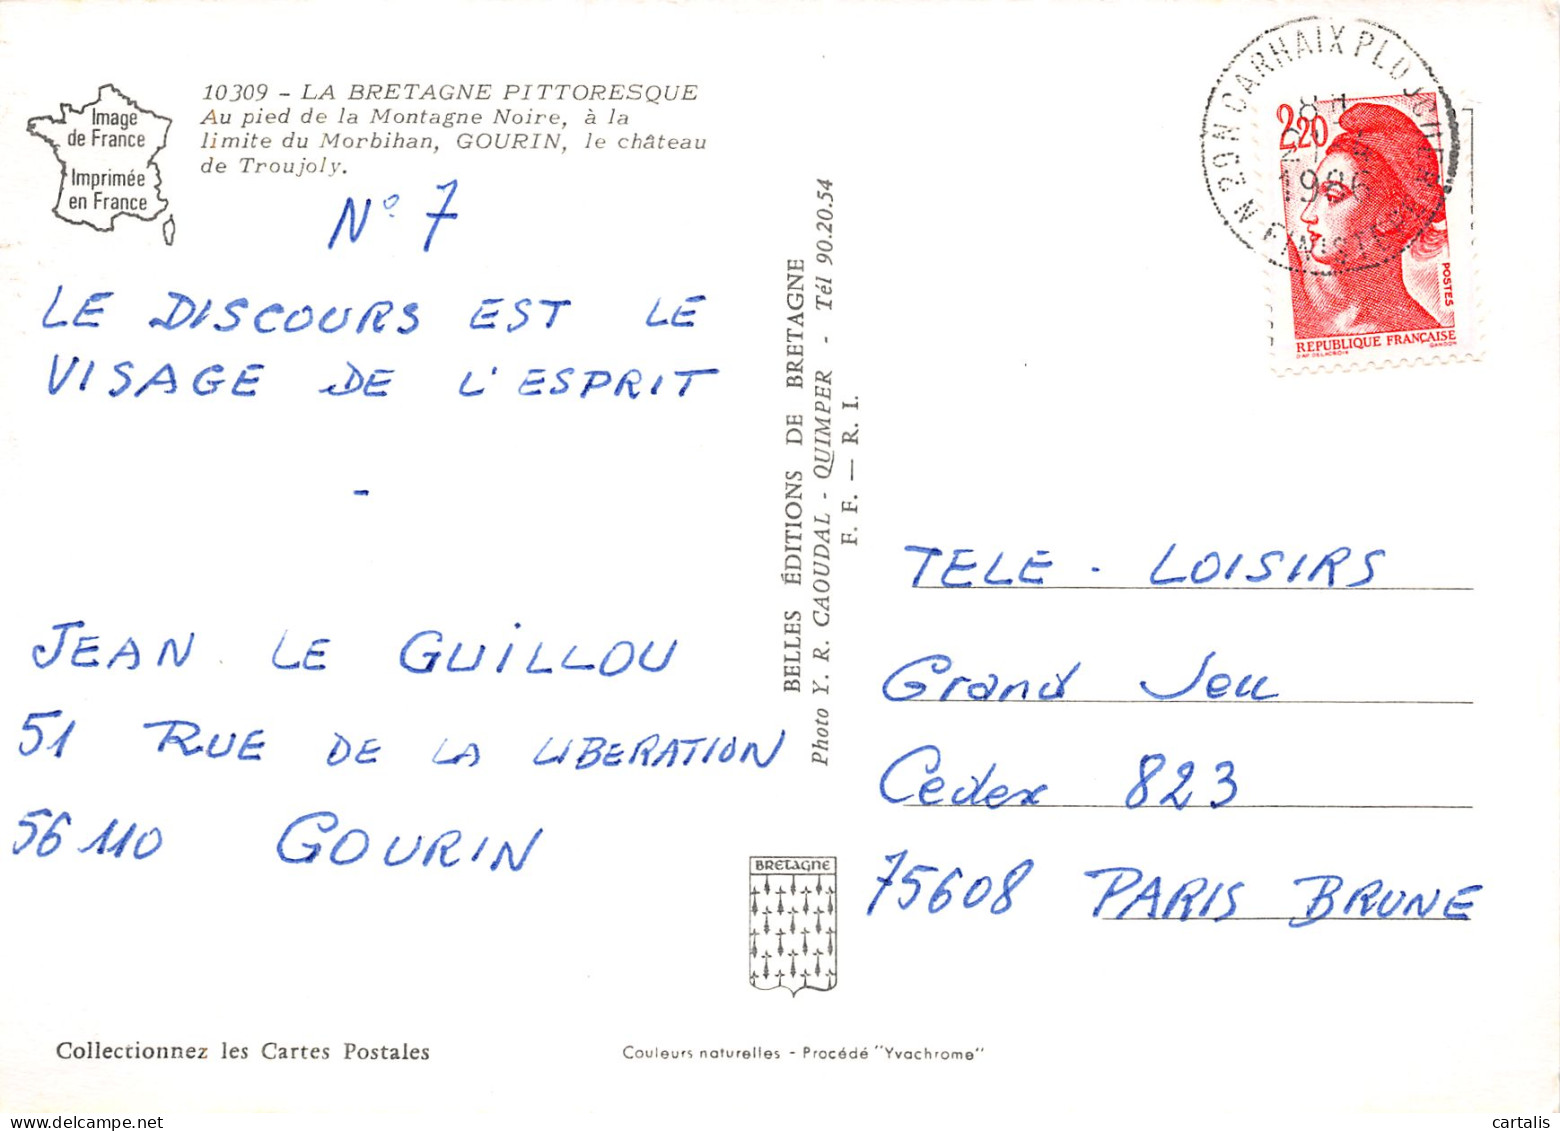 Image
de France
Imprimée
en France
10309 - LA BRETAGNE PITTORESQUE
Au pied de la Montagne Noire, à la
limite du Morbihan, GOURIN, le château
de Troujoly.
N° 7
LE DISCOURS EST LE
VISAGE DE L'ESPRIT
-
JEAN LE GUILLOU
51 RUE DE LA LIBERATION
56110 GOURIN
BELLES ÉDITIONS DE BRETAGNE
Photo Y. R. CAOUDAL - QUIMPER - Tél 90.20.54
F. F. — R. I.
BRETAGNE
29 N CARHAIX
N. FINISTERE
1986
2,20
POSTES
REPUBLIQUE FRANÇAISE
GANDON
TELE - LOISIRS
Grand Jeu
Cedex 823
75608 PARIS BRUNE
Collectionnez les Cartes Postales
Couleurs naturelles - Procédé "Yvachrome"
cartalis